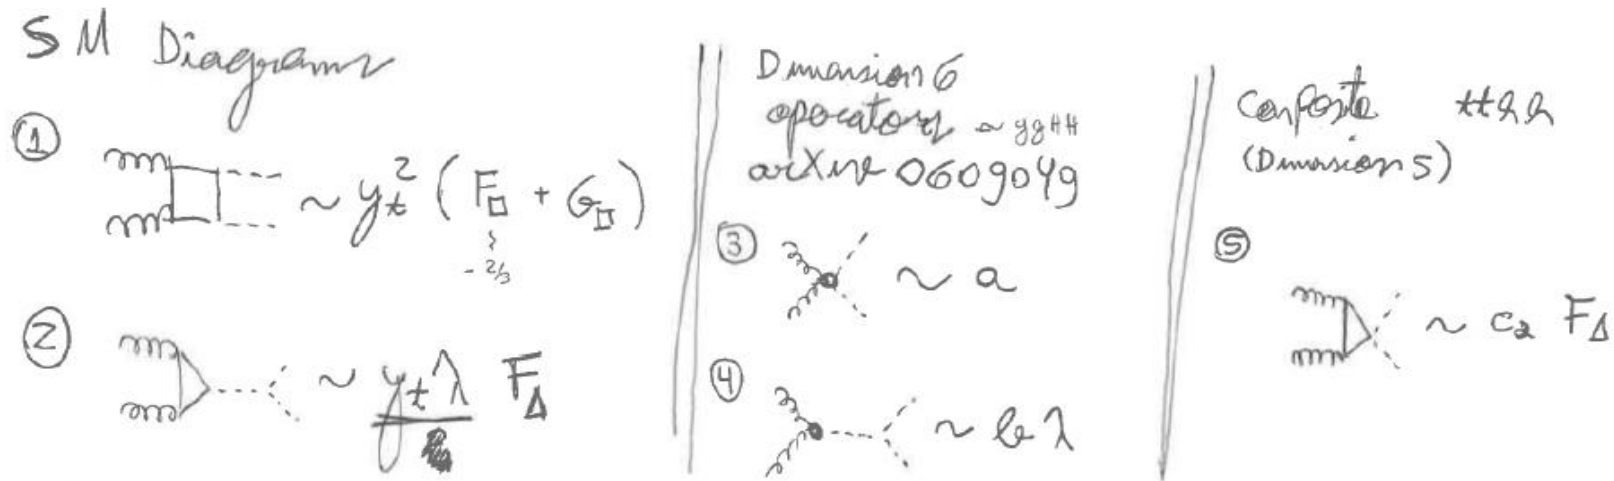 SM Diagrams
①
~ y_t^2 ( F_□ + G_□ )
- 2/3
②
~ y_t λ F_Δ
Dimension 6
operators ~ ggHH
arXiv 0609049
③
~ a
④
~ b λ
Composite tthh
(Dimension 5)
⑤
~ c_2 F_Δ